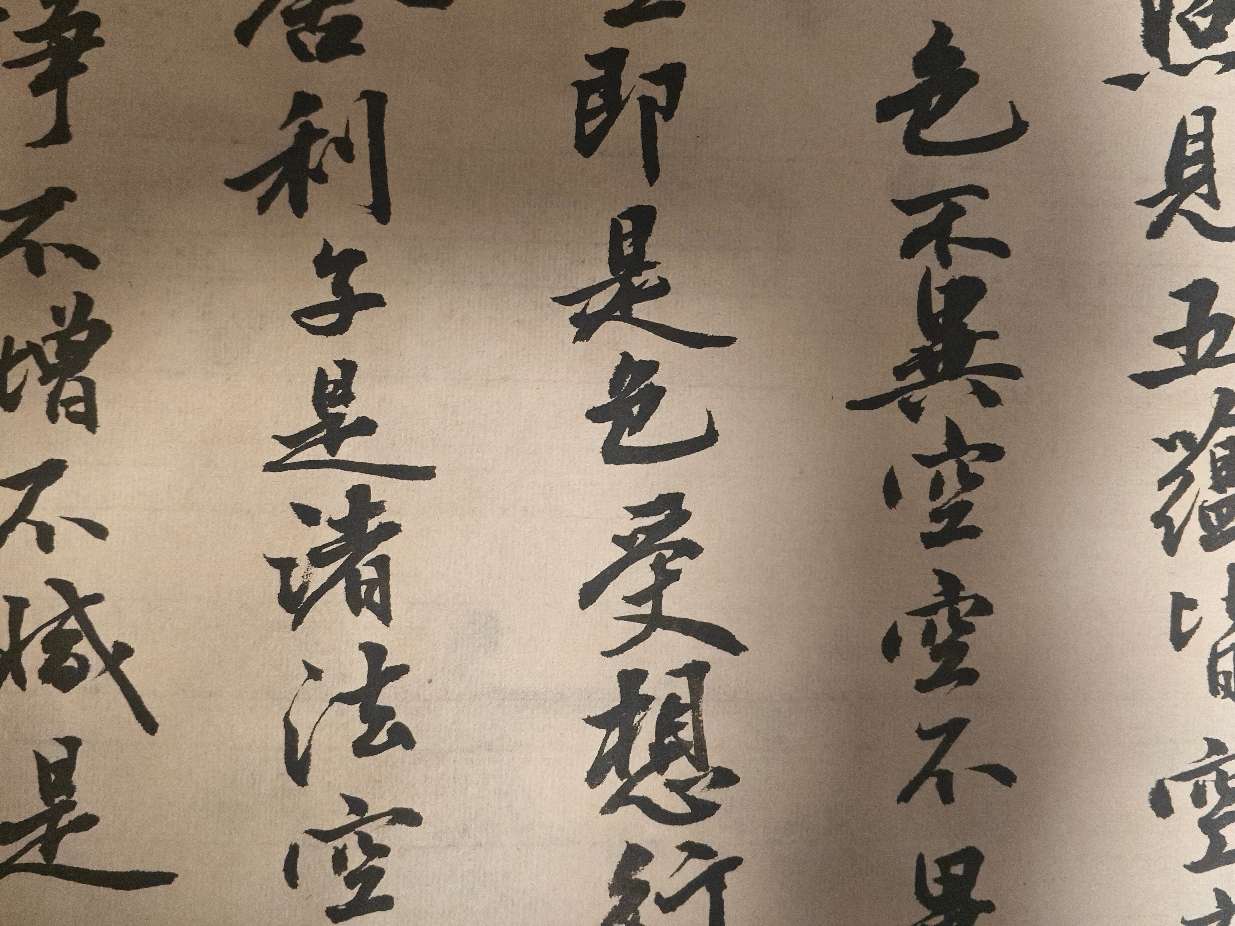 照見五蘊皆空
色不異空空不異
即是色受想行
舍利子是諸法空
淨不增不減是